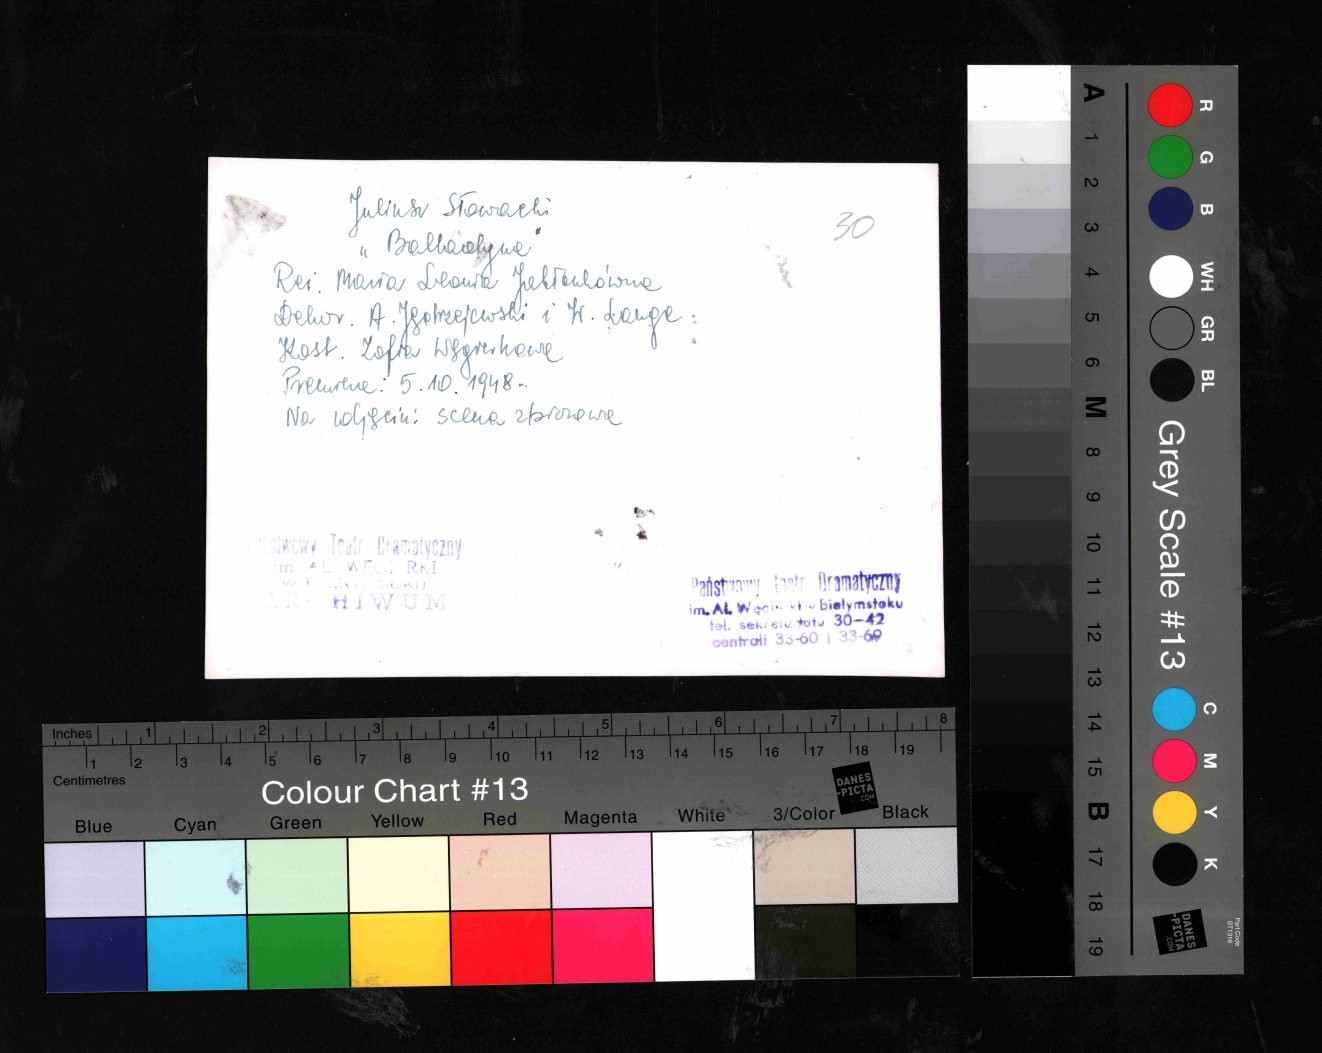 Juliusz Słowacki
„Balladyna"
30
Reż. Maria Leonia Jabłonkówna
Dekor. A. Jędrzejewski i W. Lange
Kost. Zofia Węgierkowa
Premiera: 5.10.1948.
Na zdjęciu: scena zbiorowa
Teatr Dramatyczny
im AL WĘGI RKI
AR HIWUM
Państwowy Teatr Dramatyczny
im. Al. Węgierki w Białymstoku
tel. sekretariatu 30-42
centrali 33-60 i 33-69
Inches 1 2 3 4 5 6 7 8
1 2 3 4 5 6 7 8 9 10 11 12 13 14 15 16 17 18 19
Centimetres
Colour Chart #13
DANES
-PICTA
.COM
Blue Cyan Green Yellow Red Magenta White 3/Color Black
A 1 2 3 4 5 6 M 8 9 10 11 12 13 14 15 B 17 18 19
R G B WH GR BL
Grey Scale #13
C M Y K
DANES
-PICTA
.COM
Part Code
ST1316